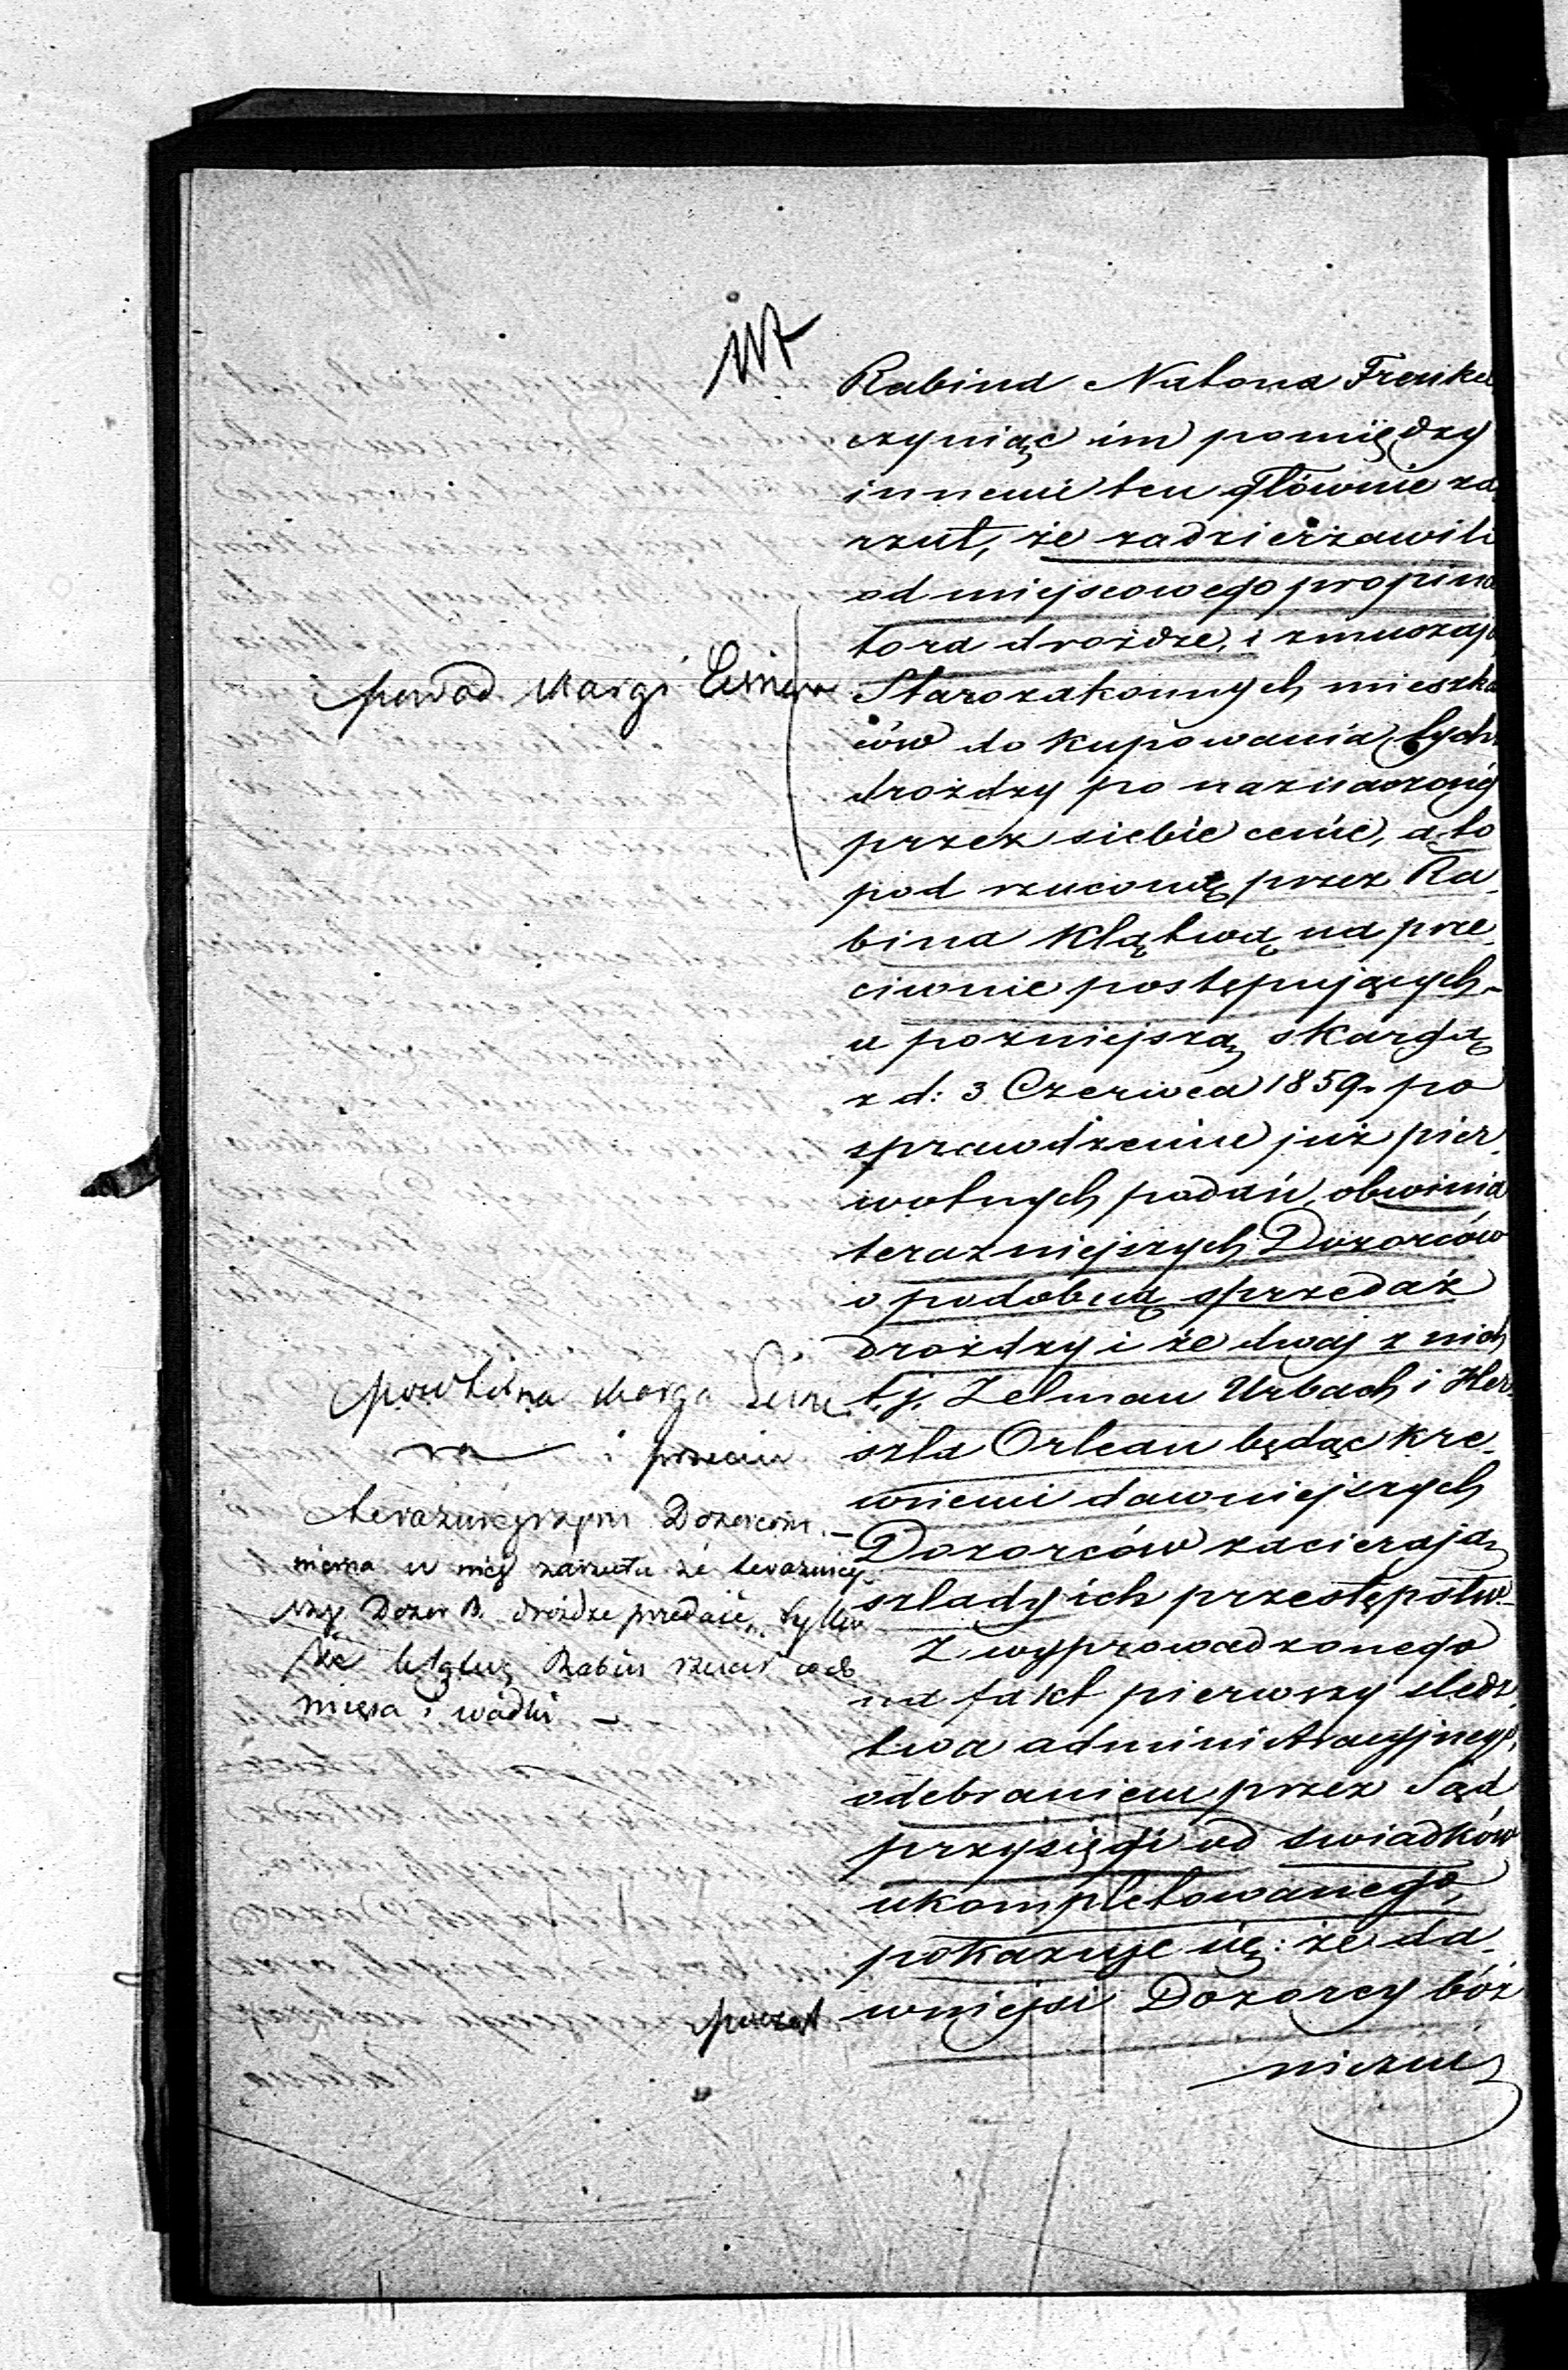 Rabina Natana Frenke
czyniąc im pomiędzy
innemi ten głównie za
rzut, że zadzierżawili
od miejscowego propina
tora drożdże, i zmuszają
Starozakonnych mieszka
ców do kupowania tych
drożdży po naznaczonéj
przez siebie cenie, a to
pod rzuconą przez Ra
bina klątwą na prze
ciwnie postępujących –
a poźniejszą skargą
z d: 3 Czerwca 1859 po
sprawdzeniu już pier
wotnych podań, obwinia
teraźniejszych Dozorców
o podobną sprzedaż
drożdzy i że dwaj z nich
t.j. Zelman Urbach i Her
szla Orlean będąc kre
wnemi dawniejszych
Dozorców zacierają
szlady ich przestępstw. –
Z wyprowadzonego
na fakt pierwszy śledz
twa administracyjnego,
odebraniem przez Sąd
przysięgi od świadków
ukompletowanego,
pokazuje się: że da
wniejsi Dozorcy bóż
niczni
powód skargi
powtórna skarga
i przeciw
teraźniejszym Dozorcom. –
niema w niej zarzutu że teraźniej
szy Dozór B. drożdże przedaje, tylko
że klątwę Rabin rzucił
mięsa i wódki –